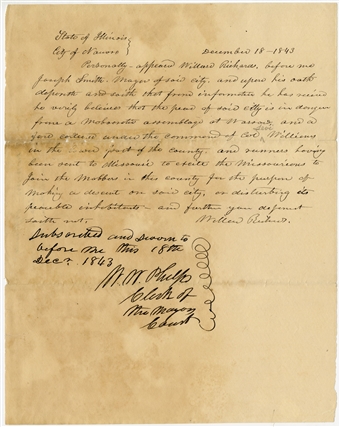 State of Illinois }
City of Nauvoo } December 18 - 1843
Personally appeared Willard Richards, before me
Joseph Smith Mayor of said city, and upon his oath
deposeth and saith that from information he has recived
he verily believes that the peace of said city is in danger
from a Mobocratic assemblage at Warsaw, and a
force under the command of Col. Levi Williams
in the part of the county, and runners having
been sent to Missouri to excite the Missourians to
Join the Mobbers in this county for the purpose of
making a descent on said city, or disturbing its
peaceable inhabitants - and further your deponent
saith not. Willard Richards.
Subscribed and Sworn to
before me this 18th
Dec. 1843
W. W. Phelps
Clerk of
the Mayors
Court